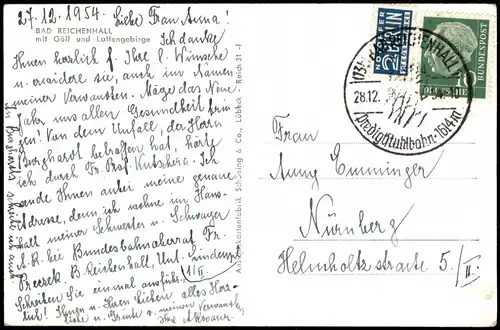 27.12.1954. Liebe Frau Anna!
BAD REICHENHALL
mit Göll und Lattengebirge
Ich danke
Ihnen herzlich f. Ihre l. Wünsche
u. erwidere sie, auch im Namen
meiner Verwandten. Möge das Neue
Jahr uns allen Gesundheit brin-
gen! Von dem Unfall, der Herrn
Burghardt betroffen hat, hörte
ich durch Fr. Prof. Kutschera. Ich
sende Ihnen anbei meine genaue
Adresse, denn ich wohne im Haus-
halt meiner Schwester u. Schwager
A.R. bei Bundesbahnoberrat Fr.
Preczek. B. Reichenhall,
1/II
Schreiben Sie einmal ausführl.
Ihnen u. Ihren Lieben alles Herz-
liche u. Grüße v. meinen Verwandten
Ihre
In Burghardt schreibe ich auch.
Ansichtskartenfabrik Schöning & Co., Lübeck · Reich 31-1
NOTOPFER
2 BERLIN
STEUERMARKE
DEUTSCHE
BUNDESPOST
(13b) BAD REICHENHALL
28.12.
Predigtstuhlbahn · 1614 m
Frau
Anny Emminger
Nürnberg
Helmholtzstraße 5/II.